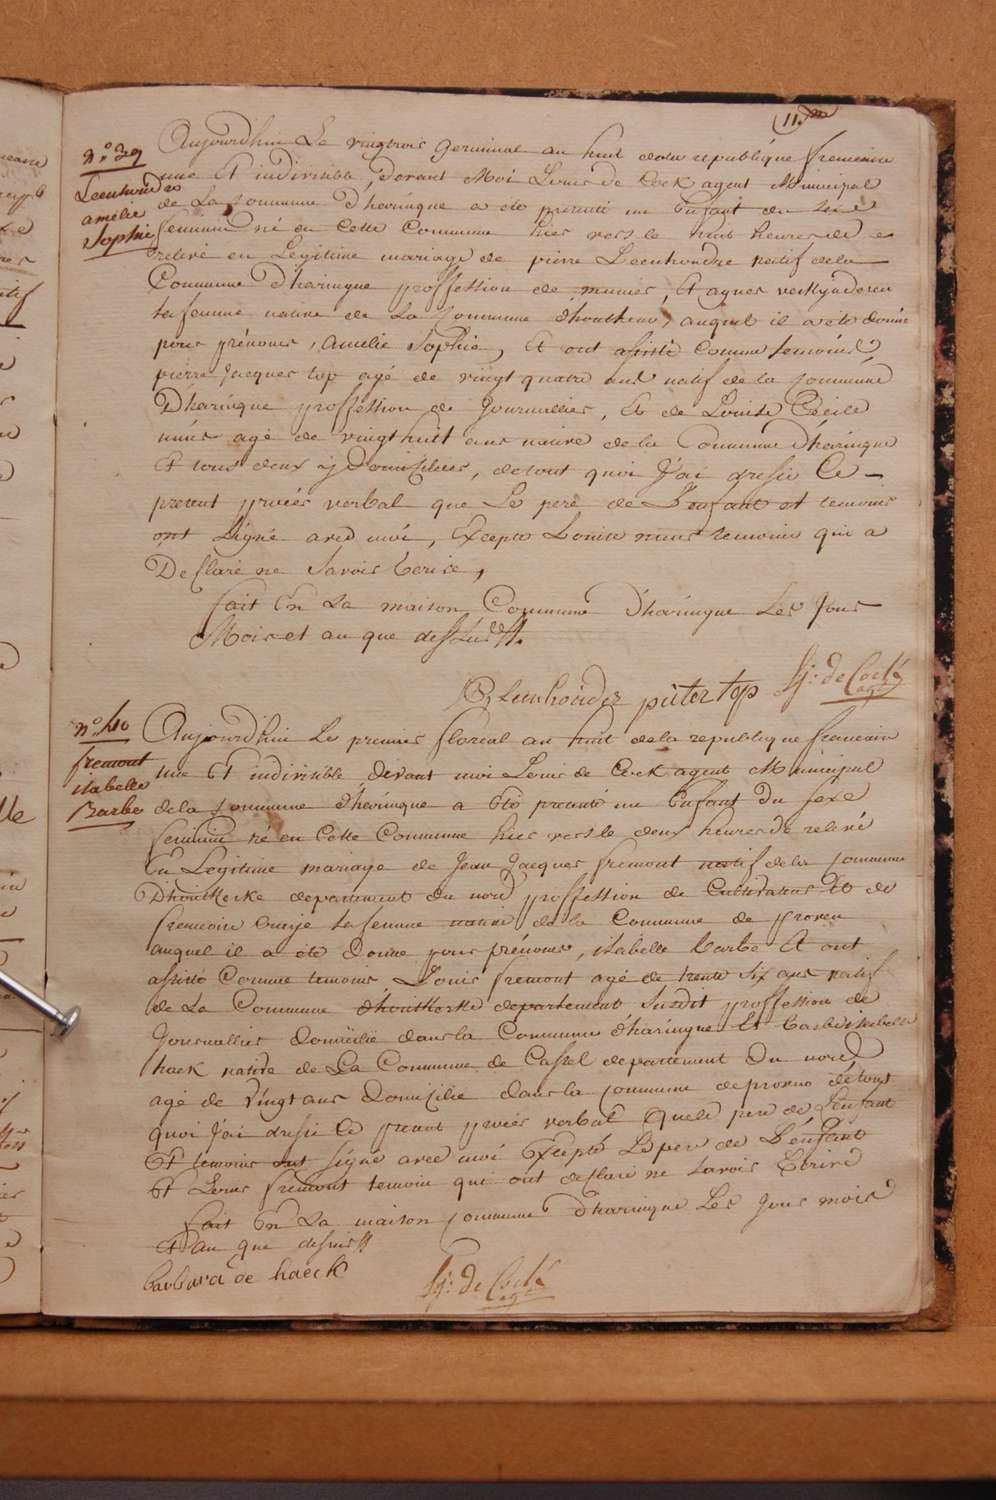 11.
N.º 39
Leenhouder
amélie
Sophie
Aujourd'hui Le vingtrois germinal an huit dela republique francaise
une Et indivisible, devant Moi Louis de Cock agent Municipal
de La Commune d'haringue a été presenté un Enfant du sexe
feminin né en Cette Commune hier vers le huit heures de
relevé en Légitime mariage de pierre Leenhoudre natif dela
Commune d'haringue proffession de, Et agnes
sa femme native de La Commune d'houthem, auquel il a été donné
pour prénoms, Amelie Sophie, Et ont assisté Comme temoins
pierre Jacques top agé de vingt quatre ans natif de la Commune
D'haringue proffession de Journallier, Et de Louise Cécile
nuns agé de vingthuit ans native de la Commune d'haringue
Et tous deux y Domiciliés, detout quoi J'ai dressé Ce
present procés verbal que Le pere de L'enfant et temoins
ont Signé avec moi, Excepté Louise nuns temoin qui a
Declaré ne Savoir Ecrire,
fait En La maison Commune D'haringue Les Jour
Mois et an que dessus
Leenhouder pieter top Lj: de Cock
agt
N.º 40
fremont
isabelle
Barbe
Aujourd'hui Le premier floreal an huit dela republique francaise
une Et indivisible devant moi Louis de Cock agent Municipal
dela Commune d'haringue a Eté presenté un Enfant Du sexe
feminin né en Cette Commune hier vers le deux heures de relevé
En Legitime mariage de Jean Jacques fremont natif dela Commune
D'houtkerke departement du nord proffession de Cultivateur Et de
francoise sa femme native dela Commune de proven
auquel il a été donné pour prénoms, isabelle barbe Et ont
assisté Comme temoins, Louis fremont agé de trente Six ans natif
de La Commune d'houtkerke departement Susdit proffession de
Journallier domicilié dans la Commune d'haringue Et barbe isabelle
haek native de La Commune de Cassel departement Du nord
agé de vingt ans domicilié dans la Commune de proven détout
quoi J'ai dressé Le present procés verbal que le pere de L'enfant
Et temoins ont signé avec moi Excepté Le pere de L'enfant
Et Louis fremont temoin qui ont declaré ne savoir Ecrire
fait En La maison Commune D'haringue Les Jour mois
Et an que dessus
barbara de haeck Lj: de Cock
agt